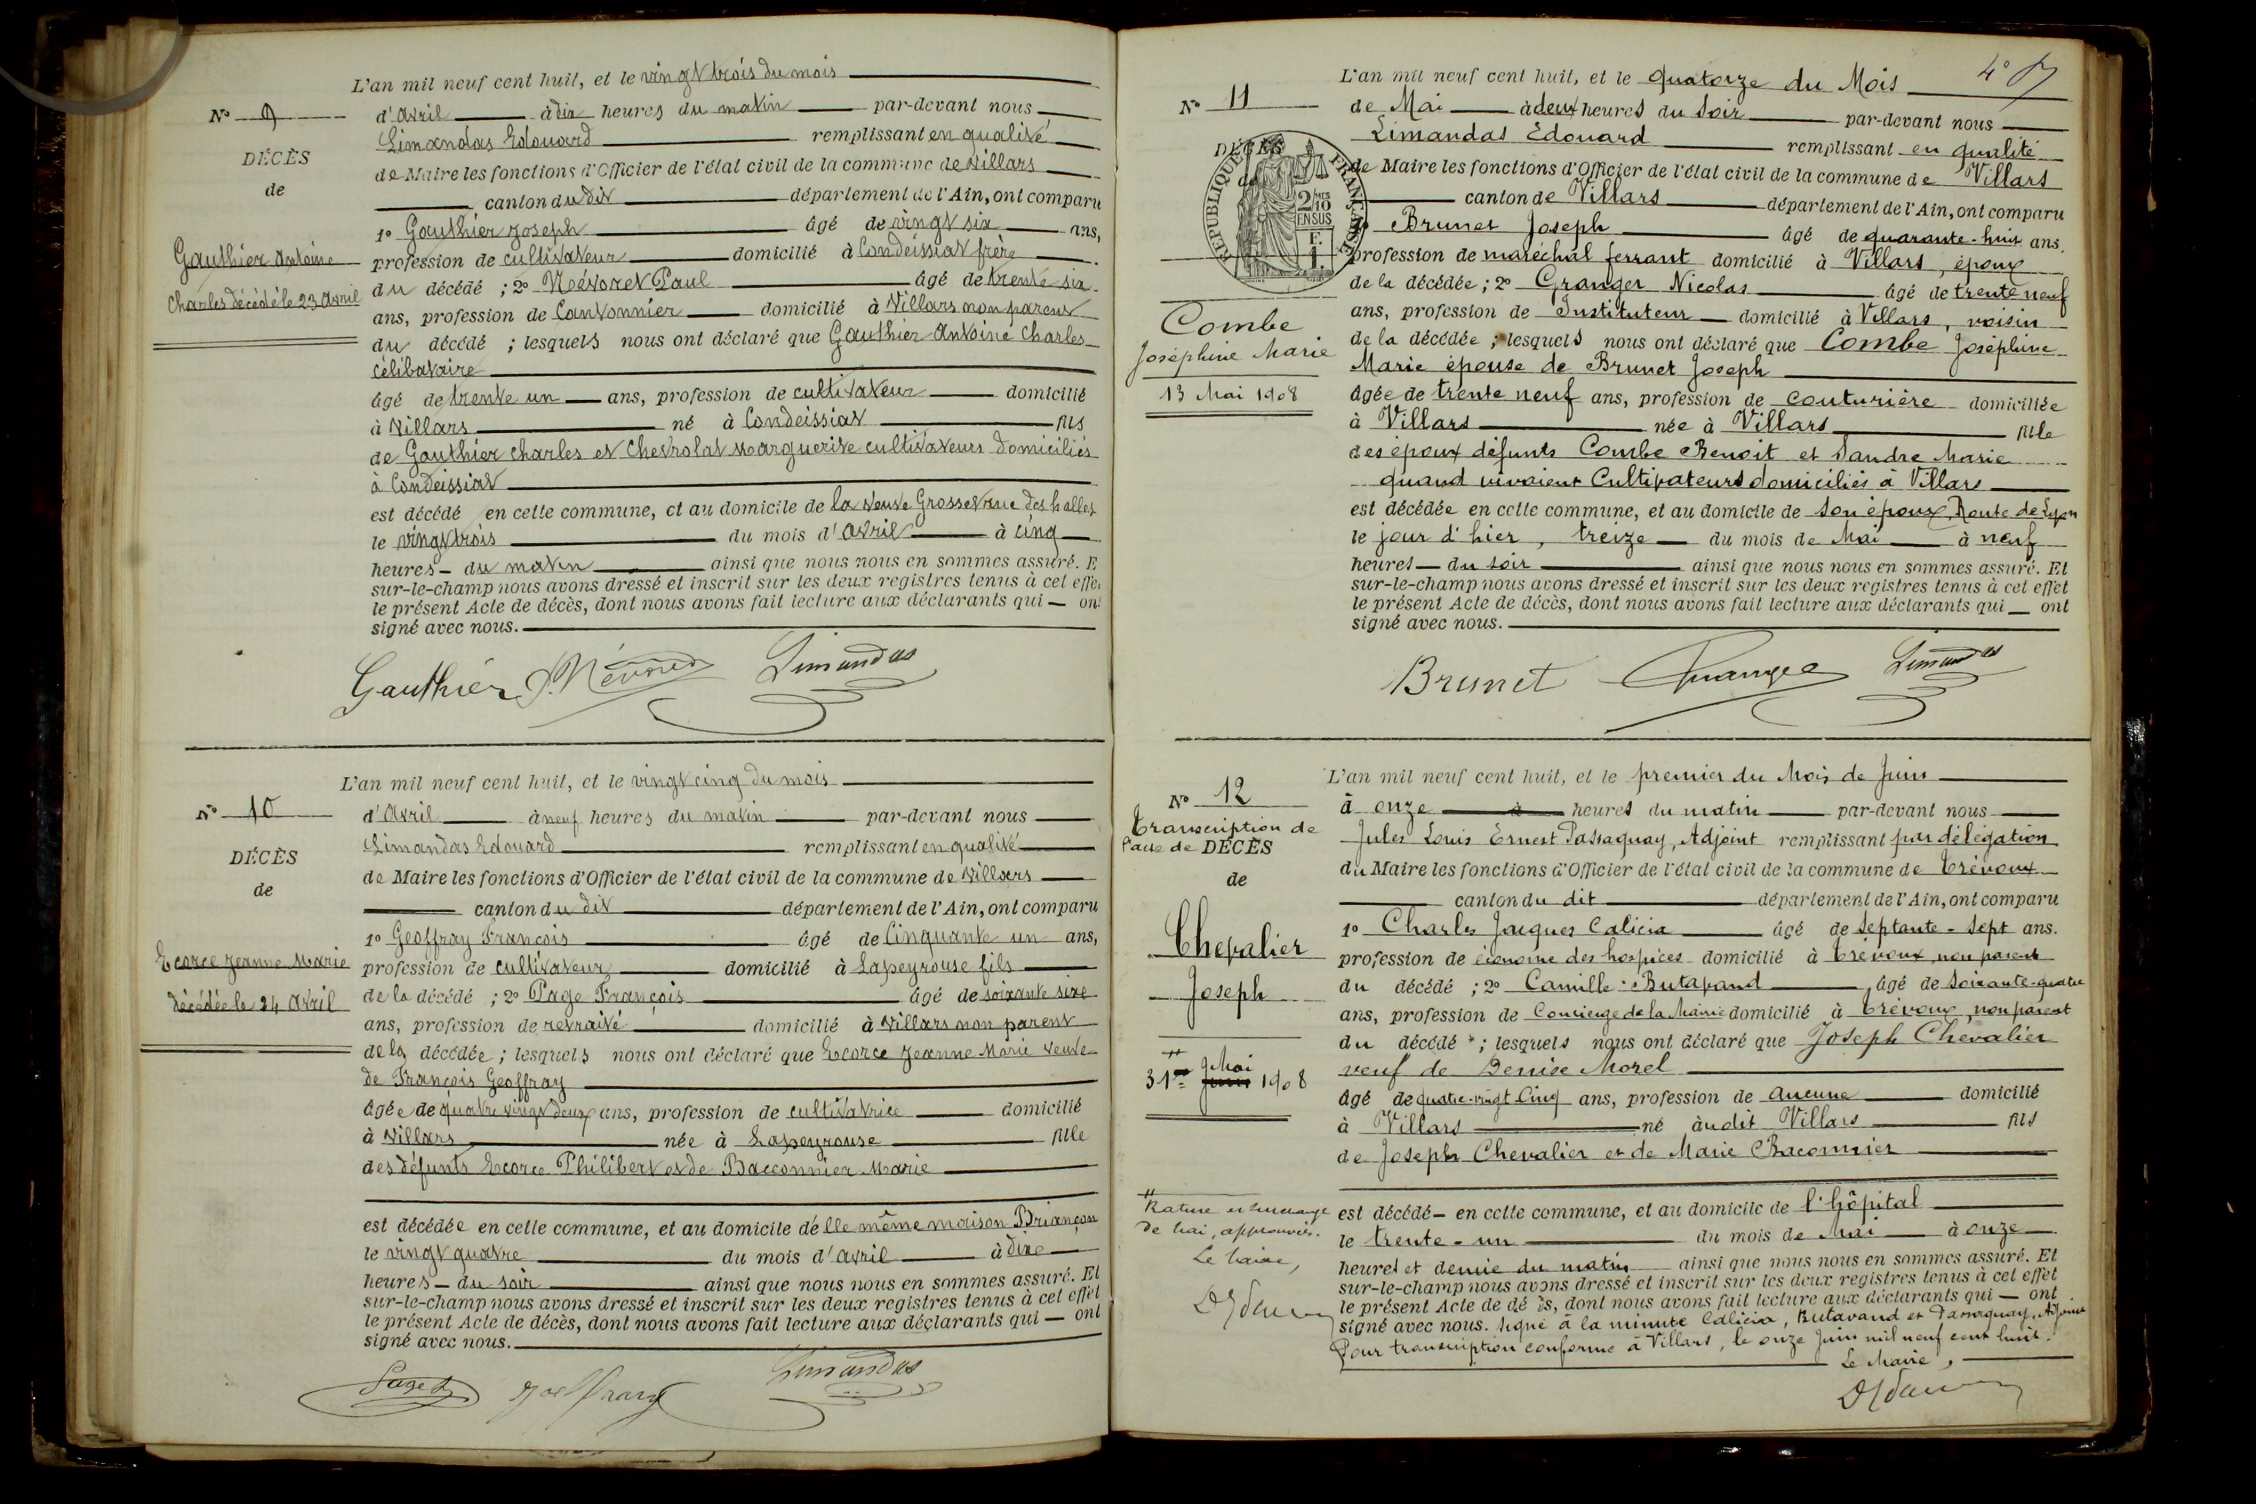 L'an mil neuf cent huit, et le vingt trois du mois
N° 9
d'avril à dix heures du matin par-devant nous
Limandas Edouard remplissant en qualité
DÉCÈS
de Maire les fonctions d'Officier de l'état civil de la commune de Villars
de
canton du dit département de l'Ain, ont comparu
1° Gauthier Joseph âgé de vingt six ans,
Gauthier Antoine
profession de cultivateur domicilié à Condeissiat frère
Charles décédé le 23 Avril
du décédé ; 2° Névoret Paul âgé de trente six
ans, profession de Cantonnier domicilié à Villars non parent
du décédé ; lesquels nous ont déclaré que Gauthier Antoine Charles
célibataire
âgé de trente un ans, profession de cultivateur domicilié
à Villars né à Condeissiat fils
de Gauthier Charles et Chevrolat Marguerite cultivateurs domiciliés
à Condeissiat
est décédé en cette commune, et au domicile de la veuve Grosset rue des halles
le vingt trois du mois d'Avril à cinq
heures du matin ainsi que nous nous en sommes assuré. E
sur-le-champ nous avons dressé et inscrit sur les deux registres tenus à cet effe
le présent Acte de décès, dont nous avons fait lecture aux déclarants qui ont
signé avec nous.
Gauthier P. Névoret Limandas
L'an mil neuf cent huit, et le vingt cinq du mois
N° 10
d'Avril à neuf heures du matin par-devant nous
Limandas Edouard remplissant en qualité
DÉCÈS
de Maire les fonctions d'Officier de l'état civil de la commune de Villars
de
canton du dit département de l'Ain, ont comparu
1° Geoffray François âgé de Cinquante un ans,
Ecorce Jeanne Marie
profession de cultivateur domicilié à Lapeyrouse fils
décédée le 24 Avril
de la décédé ; 2° Page François âgé de soixante sixe
ans, profession de retraité domicilié à Villars non parent
de la décédée ; lesquels nous ont déclaré que Ecorce Jeanne Marie veuve
de François Geoffray
âgée de quatre vingt deux ans, profession de cultivatrice domicilié
à Villars née à Lapeyrouse fille
des défunts Ecorce Philibert et de Bacconnier Marie
est décédée en cette commune, et au domicile d'elle même maison Briançon
le vingt quatre du mois d'avril à dixe
heures du soir ainsi que nous nous en sommes assuré. Et
sur-le-champ nous avons dressé et inscrit sur les deux registres tenus à cet effet
le présent Acte de décès, dont nous avons fait lecture aux déclarants qui ont
signé avec nous.
Page Geoffray Limandas
4°
L'an mil neuf cent huit, et le quatorze du Mois
N° 11
de Mai à deux heures du soir par-devant nous
Limandas Edouard remplissant en qualité
DÉCÈS
de Maire les fonctions d'Officier de l'état civil de la commune de Villars
de
RÉPUBLIQUE FRANÇAISE
2/10 EN SUS
canton de Villars département de l'Ain, ont comparu
1° Brunet Joseph âgé de quarante-huit ans.
profession de maréchal ferrant domicilié à Villars, époux
de la décédée ; 2° Granger Nicolas âgé de trente neuf
ans, profession de Instituteur domicilié à Villars, voisin
Combe
Joséphine Marie
de la décédée ; lesquels nous ont déclaré que Combe Joséphine
Marie épouse de Brunet Joseph
13 Mai 1908
âgée de trente neuf ans, profession de couturière domiciliée
à Villars née à Villars fille
des époux défunts Combe Benoit et Sandre Marie
quand vivaient Cultivateurs domiciliés à Villars
est décédée en cette commune, et au domicile de son époux, Route de Lyon
le jour d'hier, treize du mois de Mai à neuf
heures du soir ainsi que nous nous en sommes assuré. Et
sur-le-champ nous avons dressé et inscrit sur les deux registres tenus à cet effet
le présent Acte de décès, dont nous avons fait lecture aux déclarants qui ont
signé avec nous.
Brunet Granger Limandas
L'an mil neuf cent huit, et le premier du Mois de Juin
N° 12
à onze à heures du matin par-devant nous
Transcription de
l'acte de DÉCÈS
Jules Louis Ernest Passaquay, Adjoint remplissant par délégation
du Maire les fonctions d'Officier de l'état civil de la commune de Trévoux
de
canton du dit département de l'Ain, ont comparu
1° Charles Jacques Calicia âgé de septante-sept ans.
Chevalier
profession de économe des hospices domicilié à Trévoux, non parent
Joseph
du décédé ; 2° Camille Butavand, âgé de soixante-quatre
ans, profession de Concierge de la Mairie domicilié à Trévoux, non parent
du décédé ; lesquels nous ont déclaré que Joseph Chevalier
31 Mai Juin 1908
veuf de Denise Morel
âgé de quatre-vingt Cinq ans, profession de aucune domicilié
à Villars né àudit Villars fils
de Joseph Chevalier et de Marie Bacomnier
Rature et surcharge
de Mai, approuvées.
Le Maire,
est décédé en cette commune, et au domicile de l'hôpital
le trente-un du mois de Mai à onze
heures et demie du matin ainsi que nous nous en sommes assuré. Et
sur-le-champ nous avons dressé et inscrit sur les deux registres tenus à cet effet
le présent Acte de dé ès, dont nous avons fait lecture aux déclarants qui ont
signé avec nous. Signé à la minute Calicia, Butavand et Passaquay, Adjoint
Pour transcription conforme à Villars, le onze Juin mil neuf cent huit.
Le Maire,